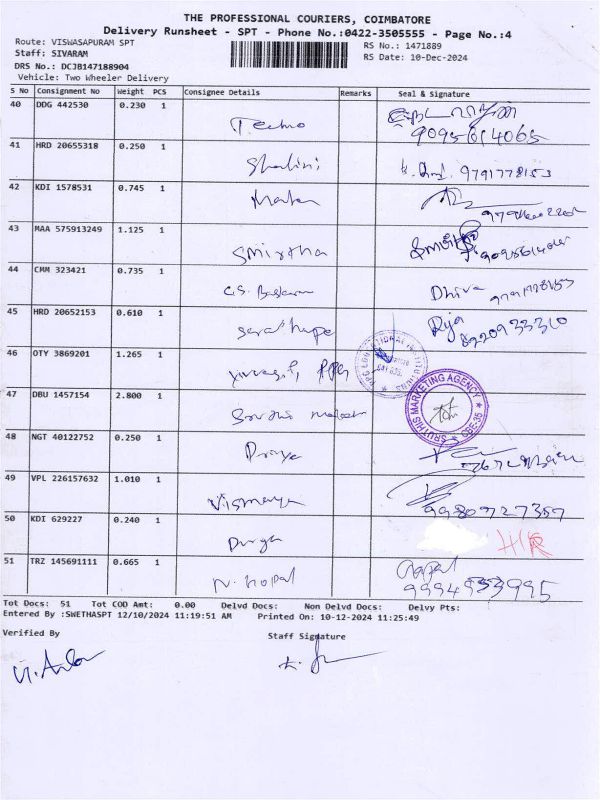 THE PROFESSIONAL COURIERS, COIMBATORE
Delivery Runsheet - SPT - Phone No.:0422-3505555 - Page No.:4
Route: VISWASAPURAM SPT
RS No.: 1471889
Staff: SIVARAM
RS Date: 10-Dec-2024
DRS No.: DCJB147188904
Vehicle: Two Wheeler Delivery
S No Consignment No Weight PCS Consignee Details Remarks Seal & Signature
40 DDG 442530 0.230 1 Techno
9095614065
41 HRD 20655318 0.250 1 Shalini 9791778153
42 KDI 1578531 0.745 1
43 MAA 575913249 1.125 1 Smirtha
44 CMM 323421 0.735 1 Dhiva
45 HRD 20652153 0.610 1 Roja
8220933310
46 OTY 3869201 1.265 1
47 DBU 1457154 2.800 1
SRUTHIS MARKETING AGENCY
CBE-35
48 NGT 40122752 0.250 1
49 VPL 226157632 1.010 1 Vismaya
9980727357
50 KDI 629227 0.240 1 Durga
51 TRZ 145691111 0.665 1 N. Gopal Gopal
9994533995
Tot Docs: 51 Tot COD Amt: 0.00 Delvd Docs: Non Delvd Docs: Delvy Pts:
Entered By :SWETHASPT 12/10/2024 11:19:51 AM Printed On: 10-12-2024 11:25:49
Verified By Staff Signature